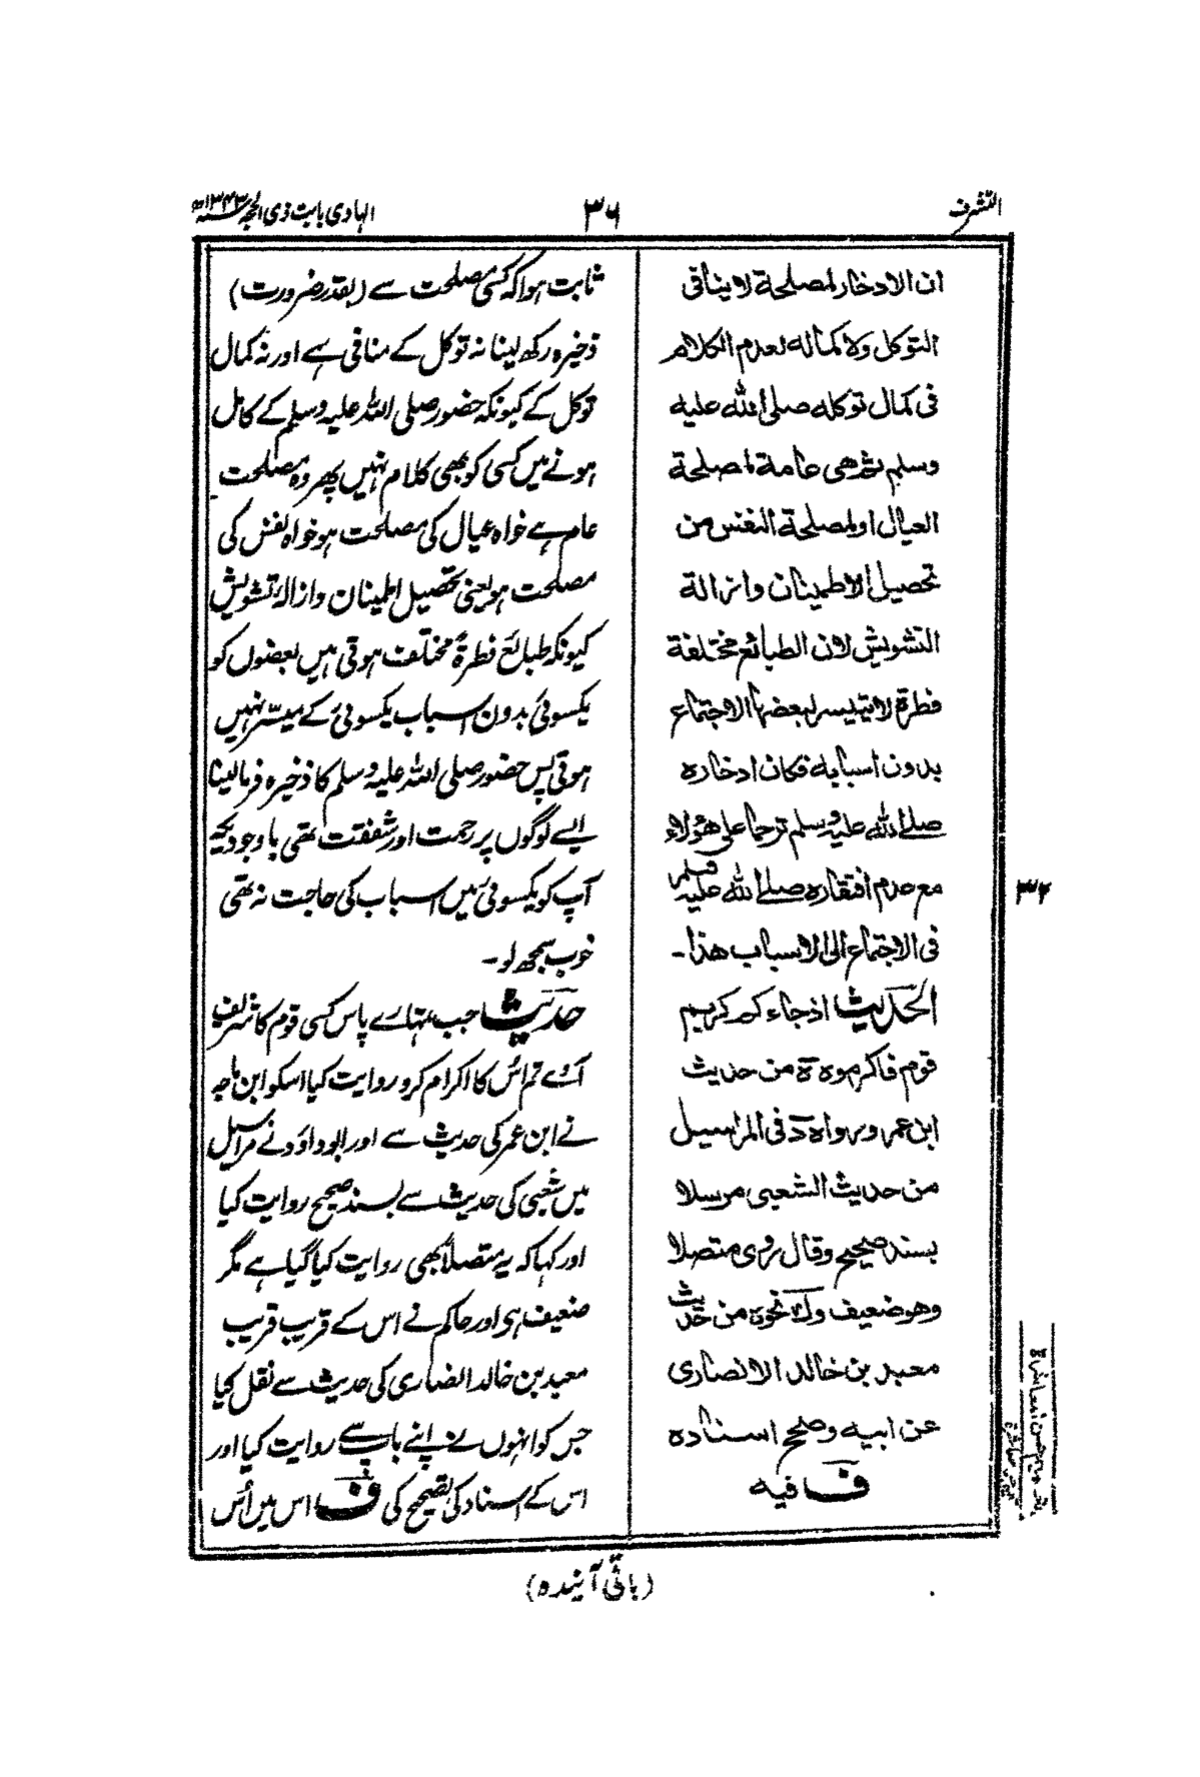 التشرف
۳۶
الہادی بابت ذی الحجہ ۱۳۴۳ھ
ان الادخار لمصلحة لا ینافی
التوکل ولا کمالہ لعدم الکلام
فی کمال توکلہ صلی اللہ علیہ
وسلم ثم ھی عامة لمصلحة
العیال او لمصلحة النفس من
تحصیل الاطمینان وازالة
التشویش لان الطبائع مختلفة
فطرة لا یتیسر لبعضہا الاجتماع
بدون اسبابہ فکان ادخارہ
صلے اللہ علیہ وسلم ترحما علی ھؤلاء
مع عدم افتقارہ صلے اللہ علیہ وسلم
فی الاجتماع الی الاسباب ھذا۔
الحدیث اذ جاءکم کریم
قوم فاکرموہ ہ من حدیث
ابن عمر ورواہ د فی المراسیل
من حدیث الشعبی مرسلا
بسند صحیح وقال روی متصلا
وھو ضعیف وک نحوہ من حدیث
معبد بن خالد الانصاری
عن ابیہ وصحح اسنادہ
ف فیہ
ثابت ہوا کہ کسی مصلحت سے (بقدر ضرورت)
ذخیرہ رکھ لینا نہ توکل کے منافی ہے اور نہ کمال
توکل کے کیونکہ حضور صلی اللہ علیہ وسلم کے کامل
ہونے میں کسی کو بھی کلام نہیں پھر وہ مصلحت
عام ہے خواہ عیال کی مصلحت ہو خواہ نفس کی
مصلحت ہو یعنی تحصیل اطمینان وازالۂ تشویش
کیونکہ طبائع فطرۃً مختلف ہوتی ہیں بعضوں کو
یکسوئی بدون اسباب یکسوئی کے میسّر نہیں
ہوتی پس حضور صلی اللہ علیہ وسلم کا ذخیرہ فرمالینا
ایسے لوگوں پر رحمت اور شفقت تھی باوجودیکہ
آپ کو یکسوئی میں اسباب کی حاجت نہ تھی
خوب سمجھ لو۔
حدیث جب تمہارے پاس کسی قوم کا شریف
آئے تم اُس کا اکرام کرو روایت کیا اسکو ابن ماجہ
نے ابن عمر کی حدیث سے اور ابوداؤد نے مراسیل
میں شعبی کی حدیث سے بسند صحیح روایت کیا
اور کہا کہ یہ متصلاً بھی روایت کیا گیا ہے مگر
ضعیف ہے اور حاکم نے اس کے قریب قریب
معبد بن خالد انصاری کی حدیث سے نقل کیا
جس کو انہوں نے اپنے باپ سے روایت کیا اور
اس کے اسناد کی تصحیح کی ف اس میں اُس
۳۲
(باقی آیندہ)